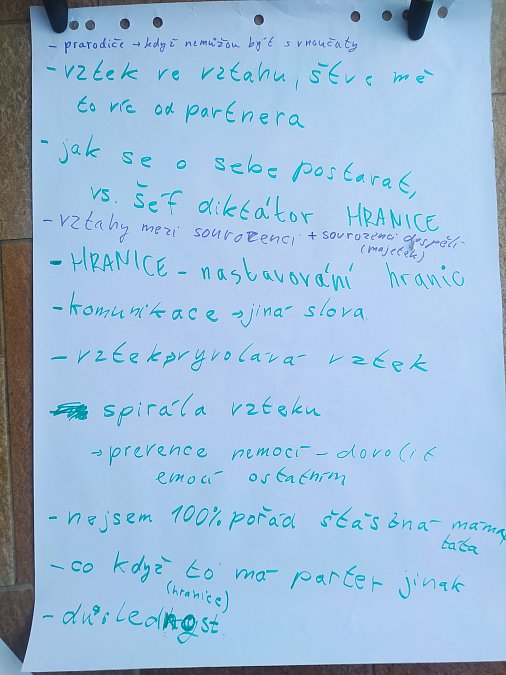 - prarodiče → když nemůžou být s vnoučaty
- vztek ve vztahu, štve mě
to víc od partnera
- jak se o sebe postarat,
vs. šéf diktátor HRANICE
- vztahy mezi sourozenci + sourozenci dospělí
(majetek)
- HRANICE - nastavování hranic
- komunikace → jiná slova
- vztek vyvolává vztek
spirála vzteku
→ prevence nemocí - dovolit
emocí ostatním
- nejsem 100% pořád šťastná máma,
táta
- co když to má parter jinak
(hranice)
- důslednost